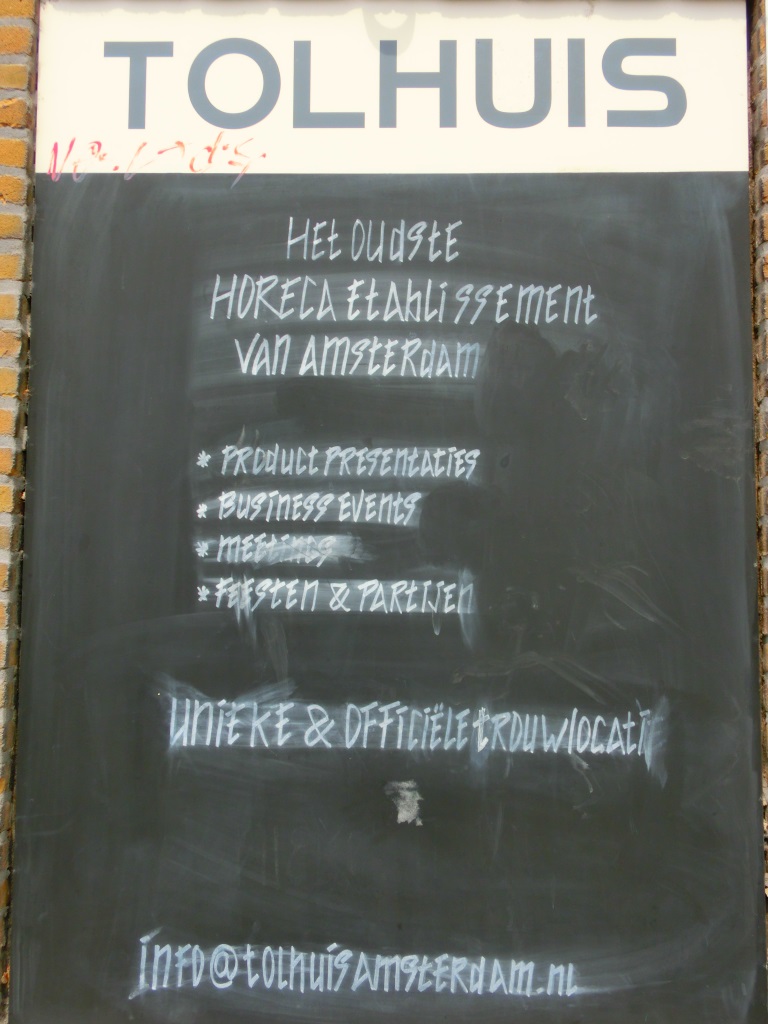 TOLHUIS
HEt OUdStE
HORECA EtAblISSEMENt
VAN AMStERdAM
* PRODUCT PRESENTATIES
* BUSINESS EVENTS
* MEETINGS
* FEESTEN & PARTIJEN
UNIEKE & OFFICIËLE tROUWlOCAtIE
INFO@tOlhUISAMStERdAM.Nl